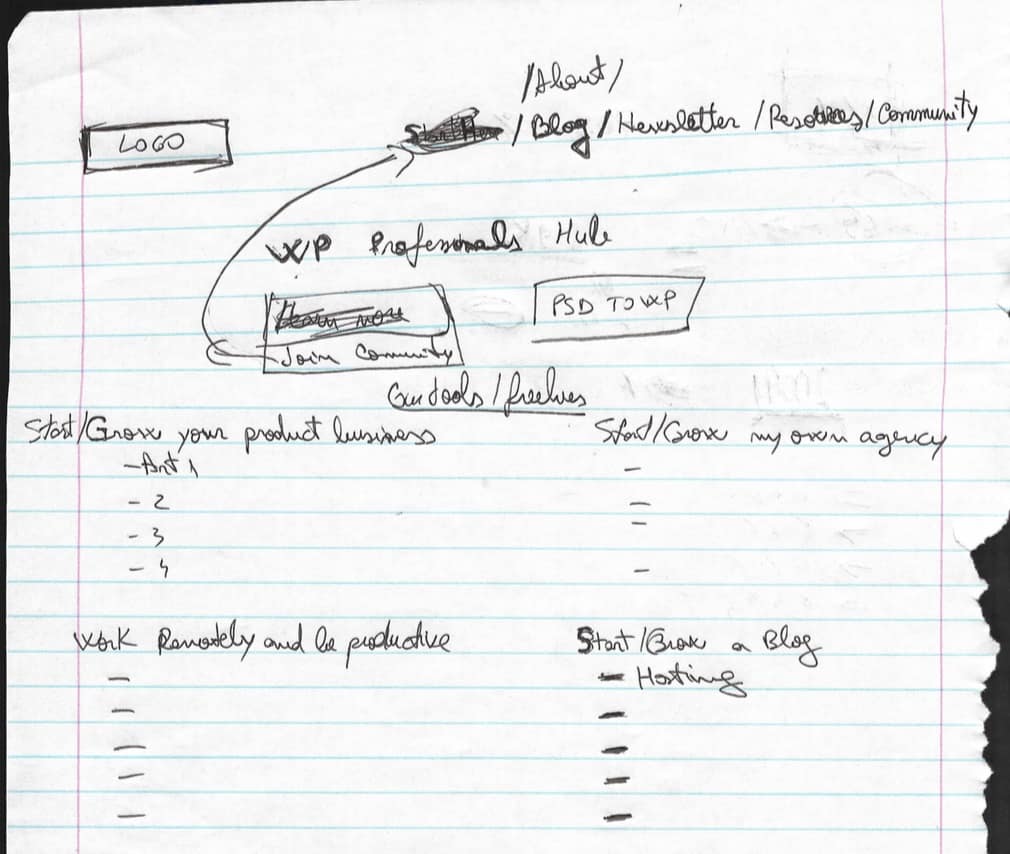 /About/
LOGO
Start Here / Blog / Newsletter / Resources / Community
WP Professionals Hub
Learn more
PSD TO WP
Join Comunity
Our tools / freebies
Start/Grow your product business
Start/Grow my own agency
- Art 1
-
- 2
-
- 3
-
- 4
-
Work Remotely and be productive
Start/Grow a Blog
-
- Hosting
-
-
-
-
-
-
-
-